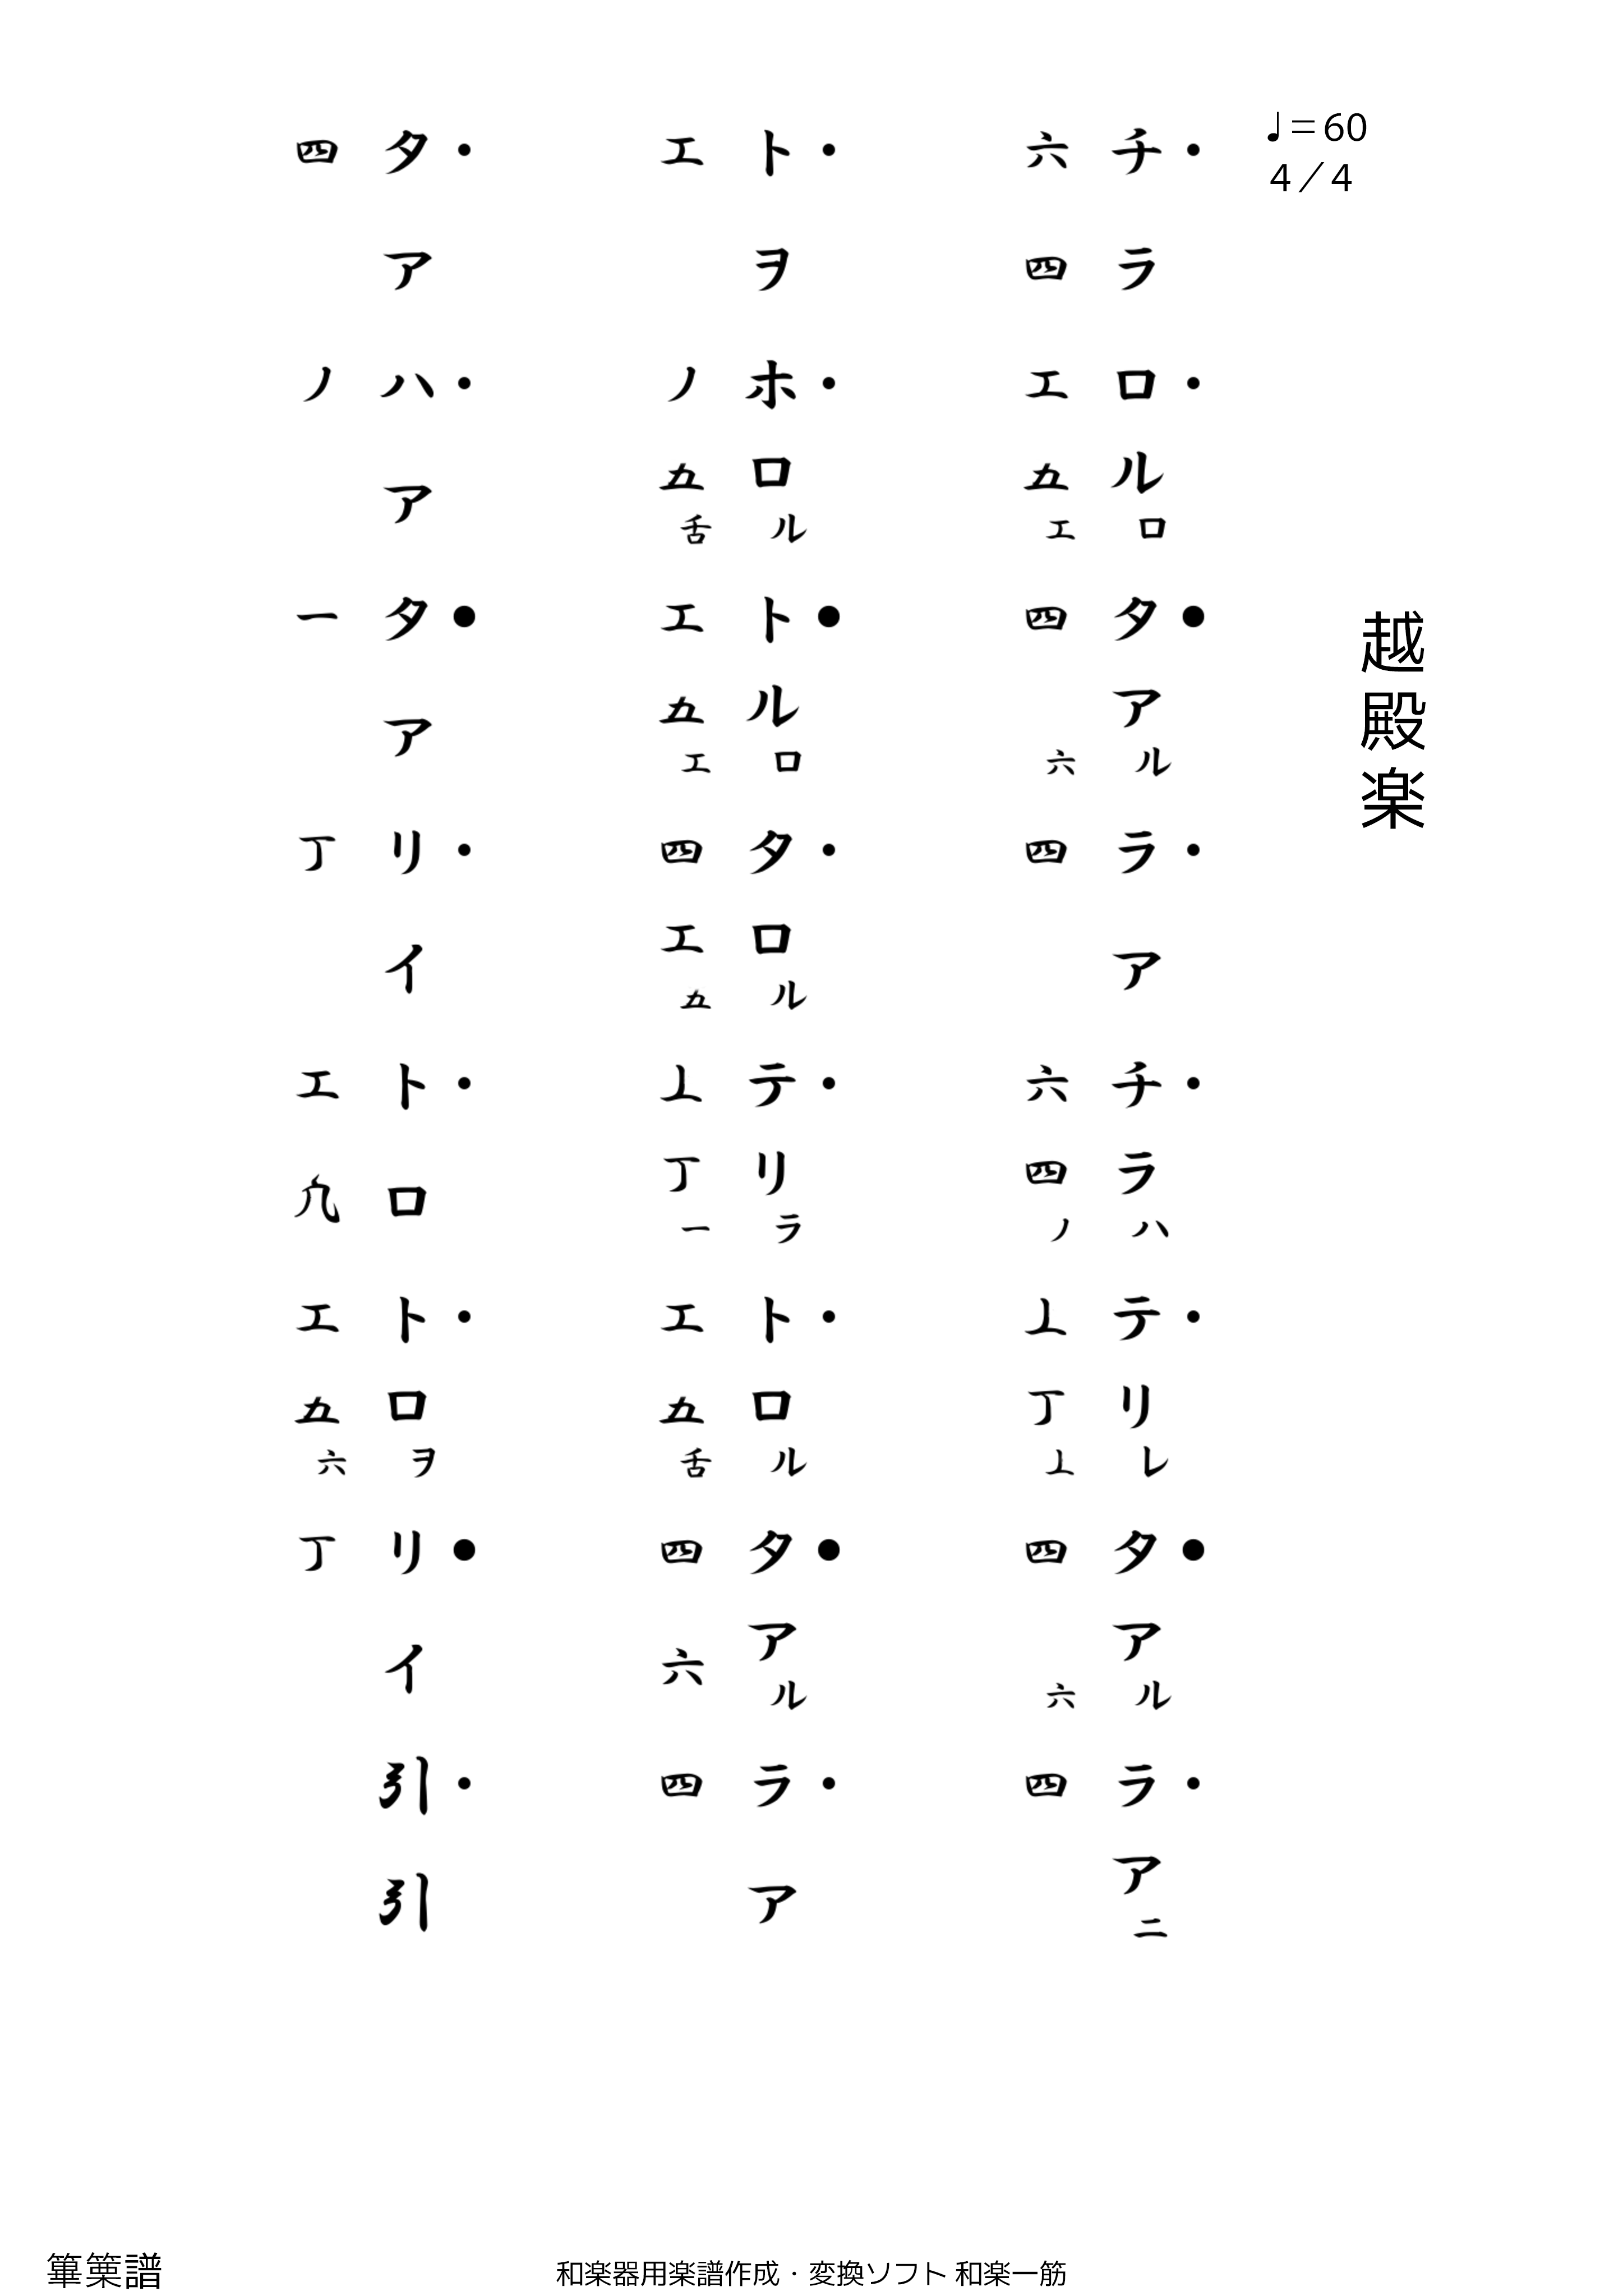 越殿楽
♩＝60
4／4
チラロルロタアルラアチラハテリレタアルラアニ
六四エ五エ四六四六四ノ丄丁丄四六四
トヲホロルトルロタロルテリラトロルタアルラア
エノ五舌エ五エ四エ五丄丁一エ五舌四六四
タアハアタアリイトロトロヲリイ引引
四ノ一丁エ凢エ五六丁
篳篥譜
和楽器用楽譜作成・変換ソフト 和楽一筋